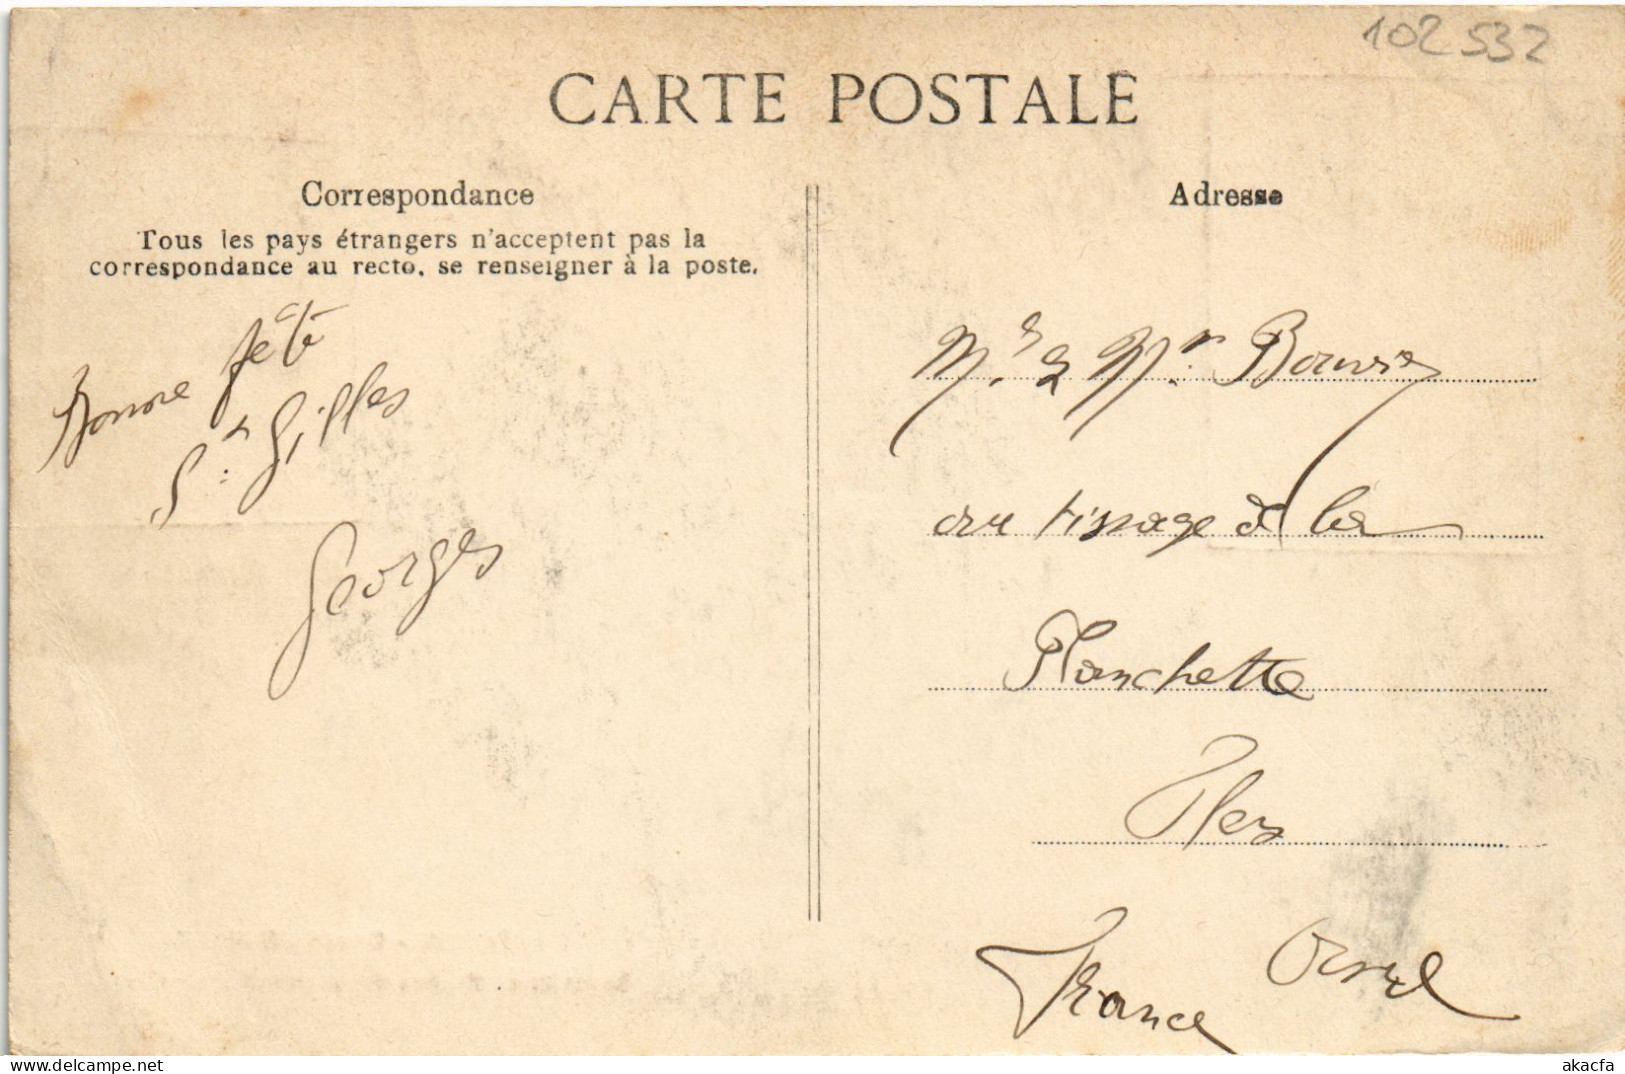 102 532
CARTE POSTALE
Correspondance
Tous les pays étrangers n'acceptent pas la
correspondance au recto, se renseigner à la poste.
Bonne fête
St Gilles
Georges
Adresse
Mr & Mr
au tissage à la
Planchette
Flers
Orne
France
akacfa